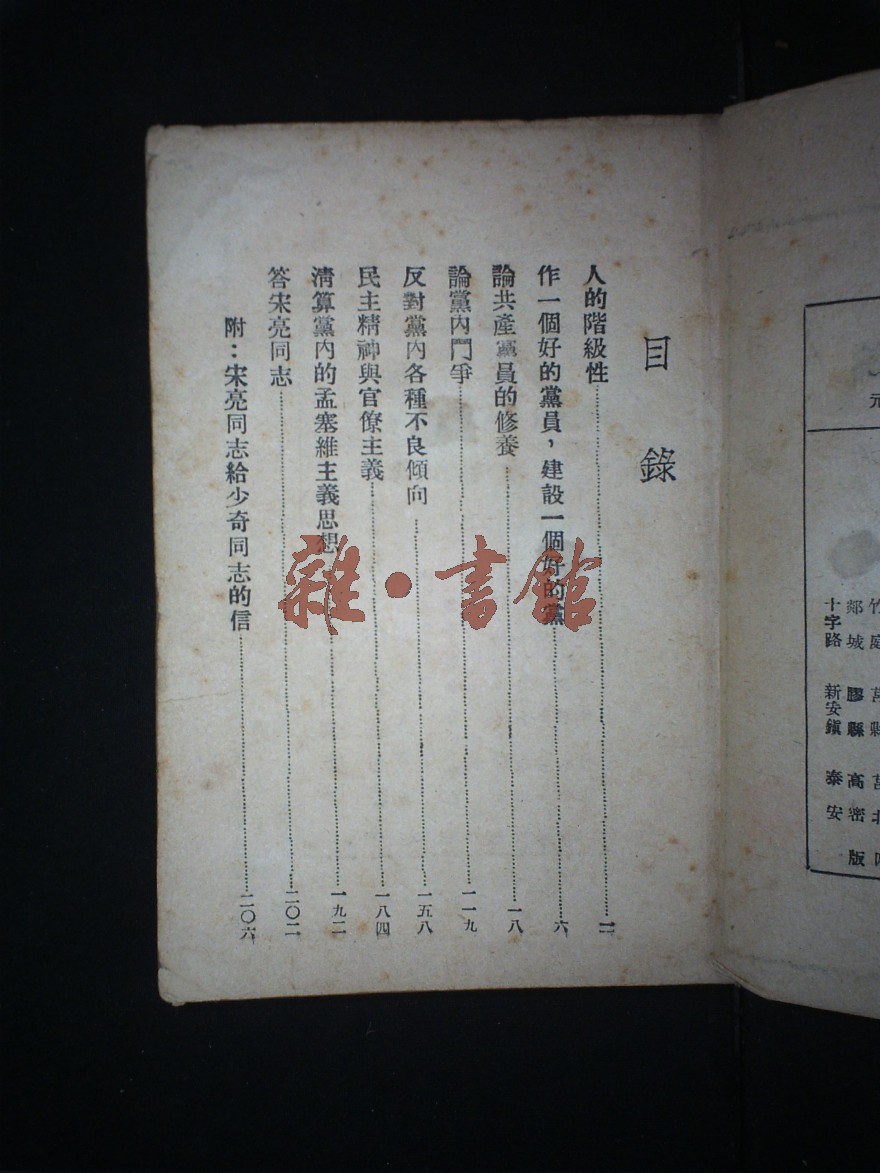 目錄
人的階級性 二
作一個好的黨員，建設一個好的黨 六
論共產黨員的修養 一八
論黨內鬥爭 一一九
反對黨內各種不良傾向 一五八
民主精神與官僚主義 一八四
清算黨內的孟塞維主義思想 一九二
答宋亮同志 二〇二
附：宋亮同志給少奇同志的信 二〇六
雜·書館
元
竹庭
郯城 膠縣 高密 版
十字路 新安鎮 泰安